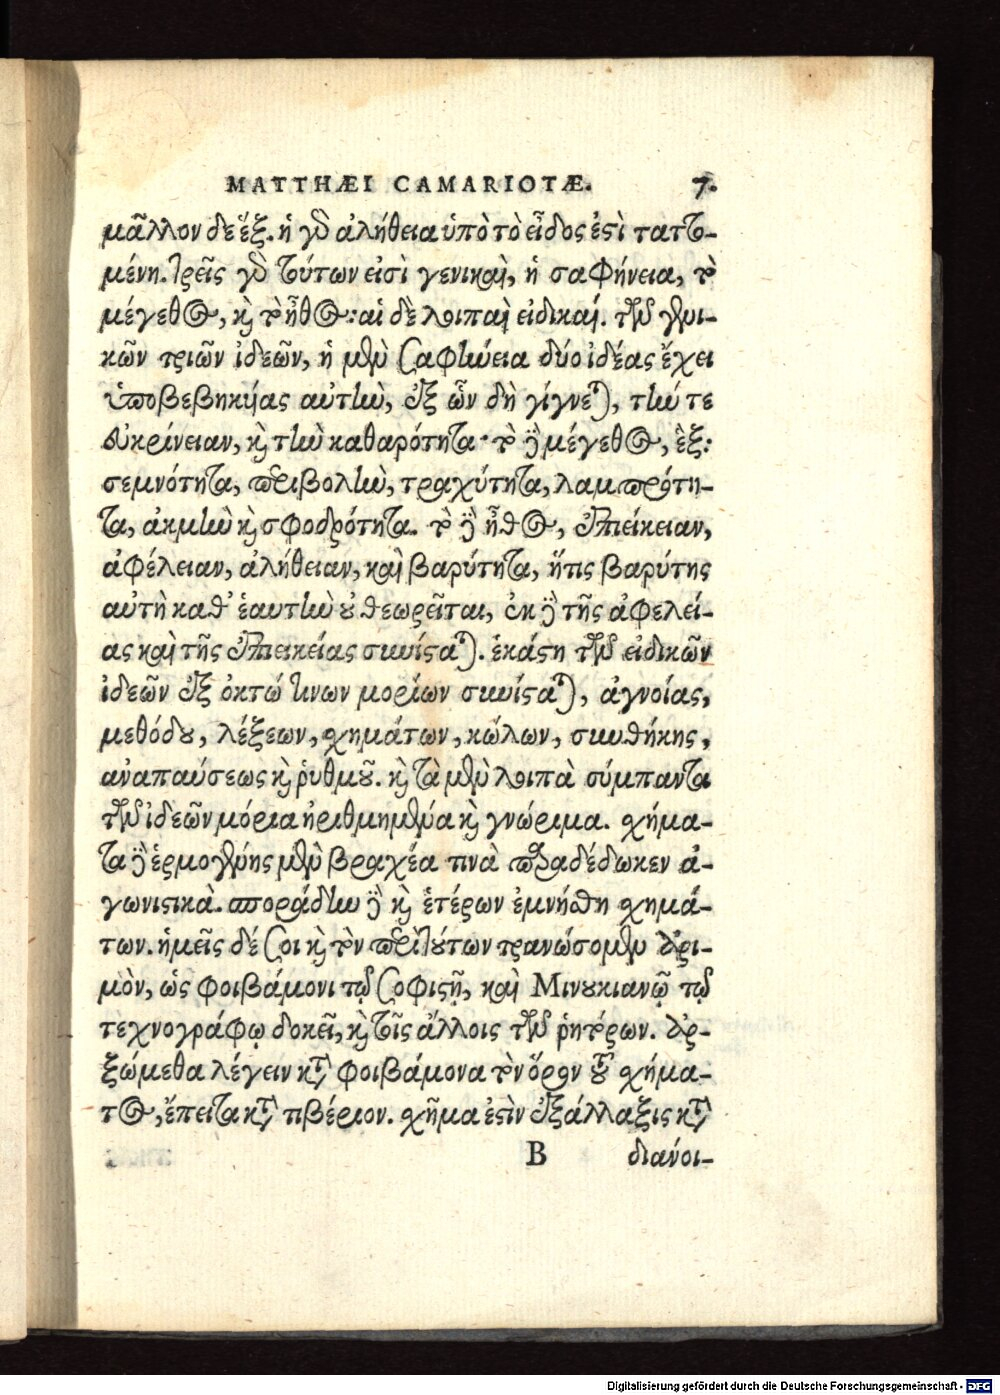 MATTHÆI CAMARIOTÆ. 7.
μᾶλλον δὲ ἕξ. ἡ γὸ ἀλήθεια ὑπὸ τὸ εἶδός ἐστὶ ταττο-
μένη. τρεῖς γὸ τούτων εἰσὶ γενικαὶ, ἡ σαφήνεια, τὸ
μέγεθος, καὶ τὸ ἦθος: αἱ δὲ λοιπαὶ εἰδικαί. τῶν γενι-
κῶν τριῶν ἰδεῶν, ἡ μὲν σαφήνεια δύο ἰδέας ἔχει
ὑποβεβηκυίας αὐτὴν, ἐξ ὧν δὴ γίγνεται, τήν τε
εὐκρίνειαν, καὶ τὴν καθαρότητα· τὸ δὲ μέγεθος, ἓξ:
σεμνότητα, περιβολὴν, τραχύτητα, λαμπρότη-
τα, ἀκμὴν καὶ σφοδρότητα. τὸ δὲ ἦθος, ἐπιείκειαν,
ἀφέλειαν, ἀλήθειαν, καὶ βαρύτητα, ἥτις βαρύτης
αὐτὴ καθ’ ἑαυτὴν οὐ θεωρεῖται, ἐκ δὲ τῆς ἀφελεί-
ας καὶ τῆς ἐπιεικείας συνίσταται. ἑκάστη τῶν εἰδικῶν
ἰδεῶν ἐξ ὀκτώ τινων μορίων συνίσταται, ἀγνοίας,
μεθόδου, λέξεων, σχημάτων, κώλων, συνθήκης,
ἀναπαύσεως καὶ ῥυθμοῦ. καὶ τὰ μὲν λοιπὰ σύμπαντα
τῶν ἰδεῶν μόρια ἠριθμημένα καὶ γνώριμα. σχήμα-
τα δὲ ἑρμογένης μὲν βραχέα τινὰ παραδέδωκεν ἀ-
γωνιστικὰ. σποράδην δὲ καὶ ἑτέρων ἐμνήσθη σχημά-
των. ἡμεῖς δέ σοι καὶ τὸν περὶ τούτων τρανώσομεν ἀρι-
μὸν, ὡς φοιβάμονι τῷ σοφιστῇ, καὶ Μινουκιανῷ τῷ
τεχνογράφῳ δοκεῖ, καὶ τοῖς ἄλλοις τῶν ῥητόρων. ἀρ-
ξώμεθα λέγειν κατὰ φοιβάμονα τὸν ὅρον τοῦ σχήμα-
τος, ἔπειτα κατὰ τιβέριον. σχῆμα ἐστὶν ἐξάλλαξις κατὰ
B διάνοι-
Digitalisierung gefördert durch die Deutsche Forschungsgemeinschaft - DFG